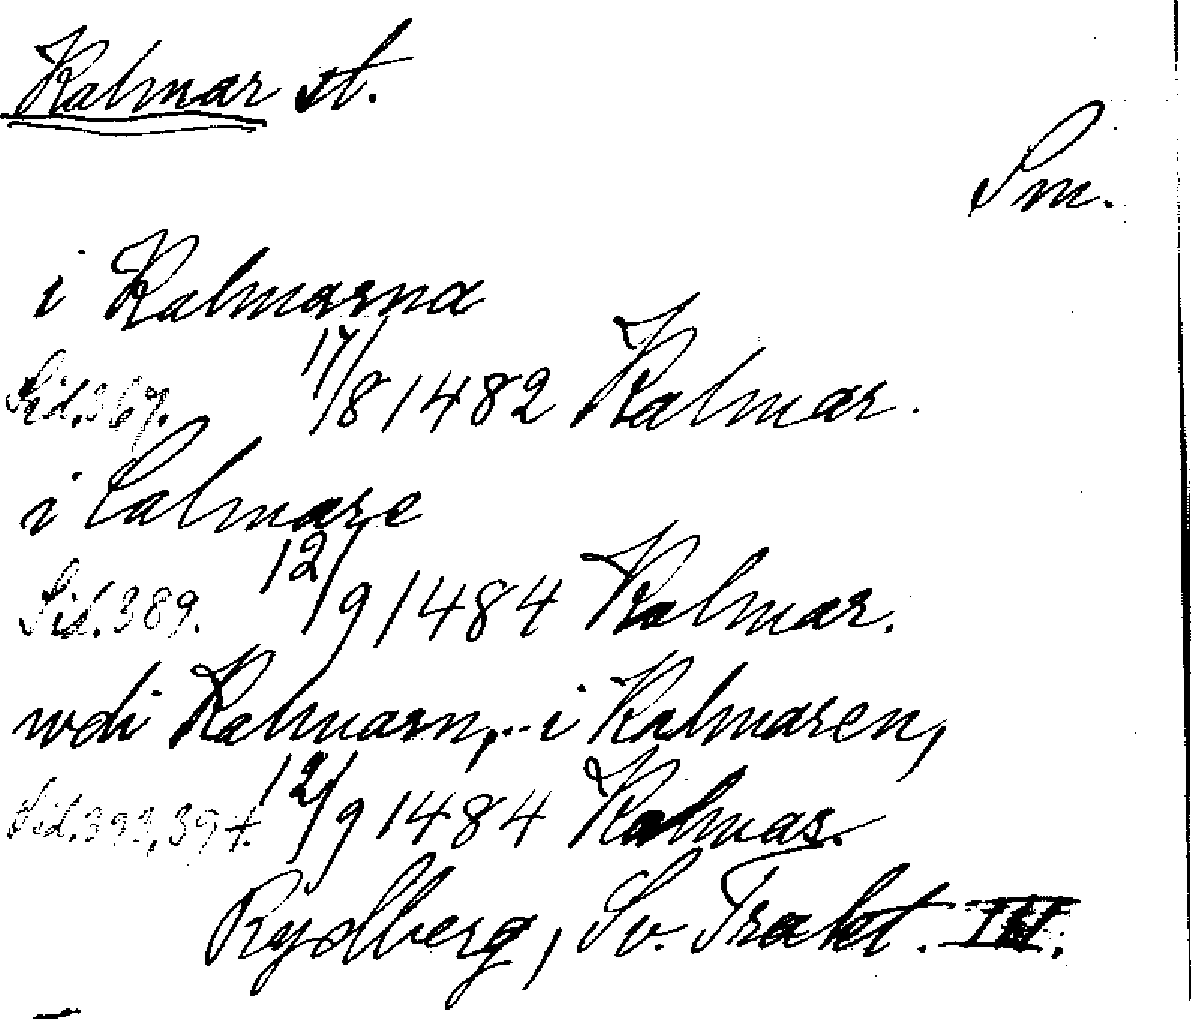 Kalmar st.
Sm.
i Kalmarna
Sid. 367. 17/8 1482 Kalmar.
i Calmare
Sid. 389. 12/9 1484 Kalmar.
wdi Kalmarn, .. i Kalmaren,
Sid. 393, 394. 12/9 1484 Kalmar.
Rydberg, Sv. Trakt. III.